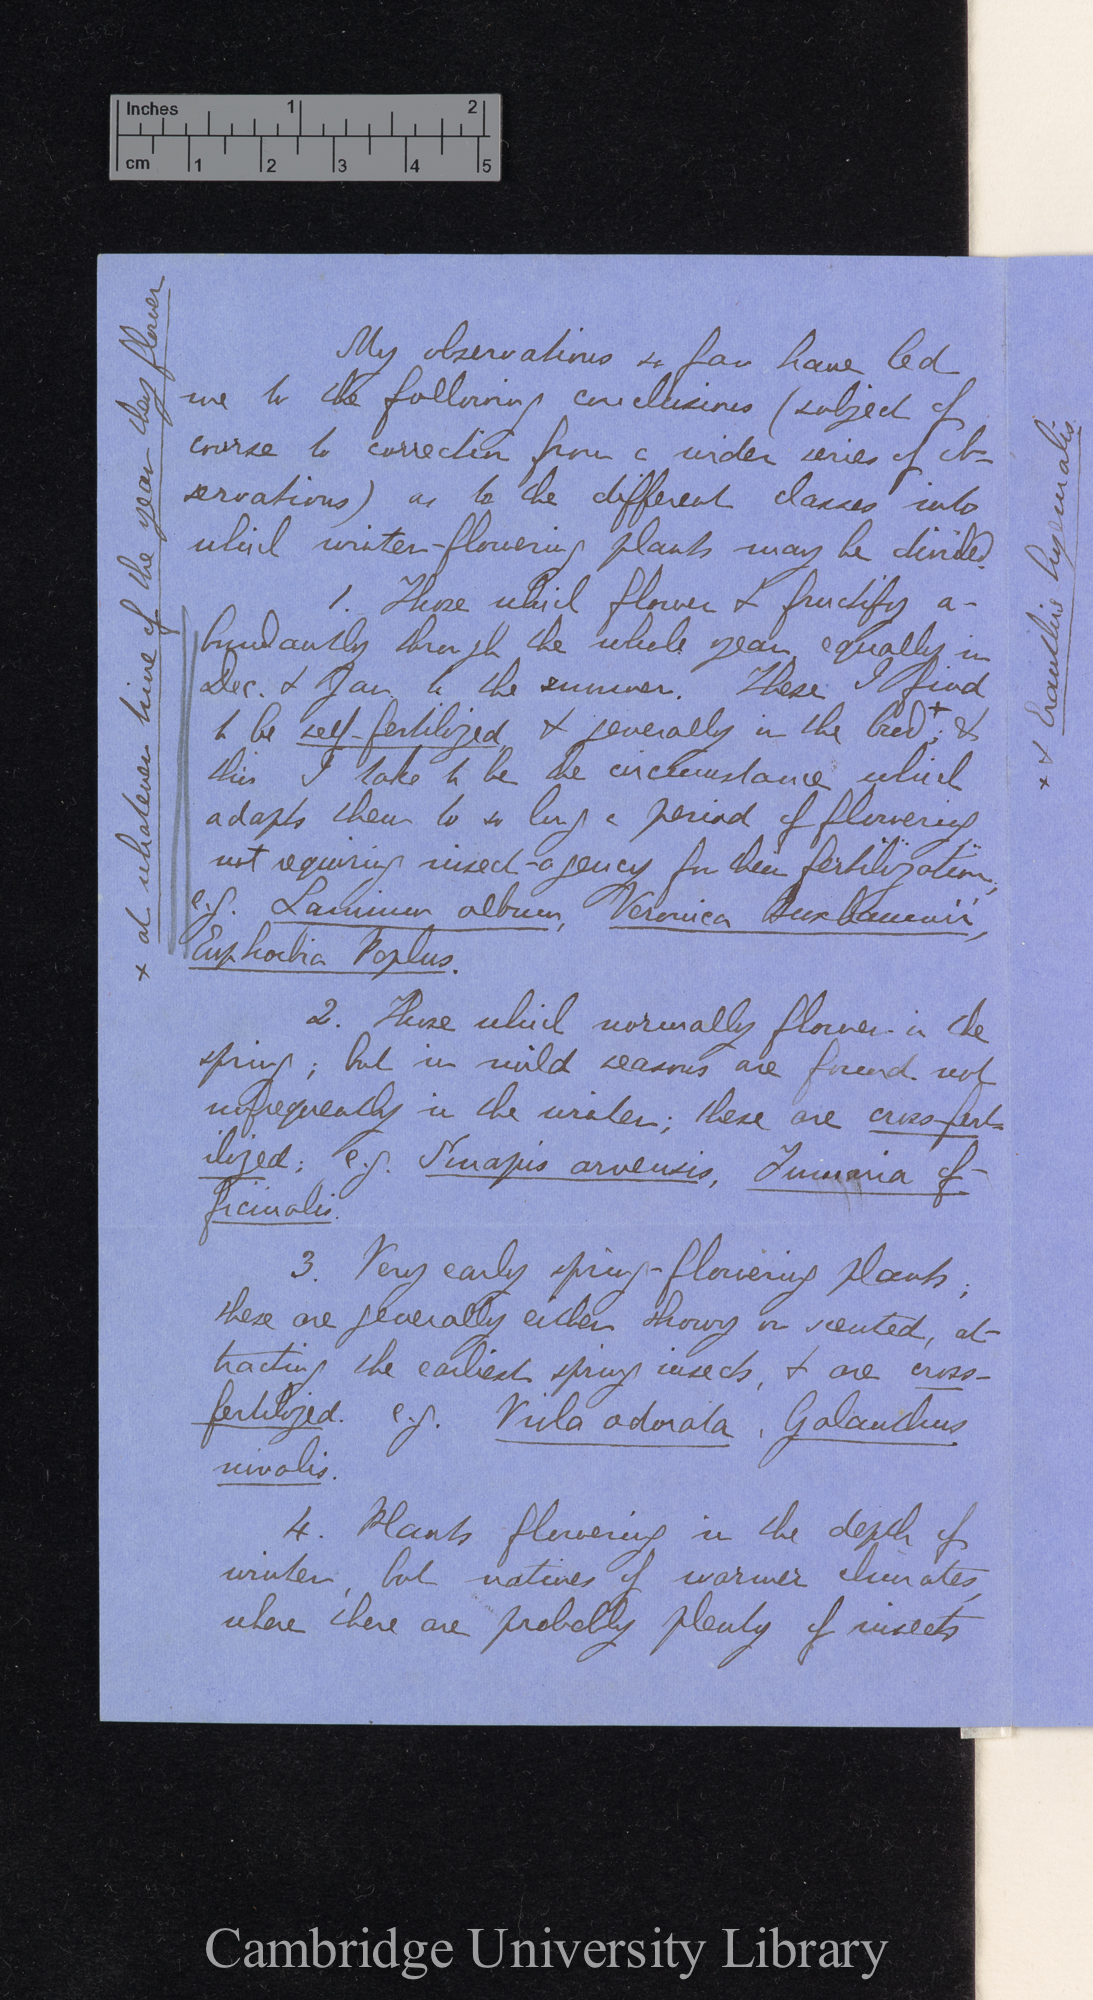 Inches 1 2
cm 1 2 3 4 5
My observations so far have led
me to the following conclusions (subject of
course to correction from a wider series of ob-
servations) as to the different classes into
which winter-flowering plants may be divided.
1. Those which flower & fructify a-
bundantly through the whole year, equally in
Dec. & Jan. to the summer. These I find
to be self-fertilized & generally in the bud+; &
this I take to be the circumstance which
adapts them to so long a period of flowering
not requiring insect-agency for their fertilization;
e.g. Lamium album, Veronica Buxbaumii,
Euphorbia Peplus.
2. Those which normally flower in the
spring; but in mild seasons are found not
unfrequently in the winter; these are cross-fert-
ilized; e.g. Sinapis arvensis, Fumaria of-
ficinalis.
3. Very early spring-flowering plants;
these are generally either showy or scented, at-
tracting the earliest spring insects, & are cross-
fertilized. e.g. Viola odorata, Galanthus
nivalis.
4. Plants flowering in the depth of
winter, but natives of warmer climates,
where there are probably plenty of insects
+ at whatever time of the year they flower
+ & Eranthis hyemalis.
Cambridge University Library